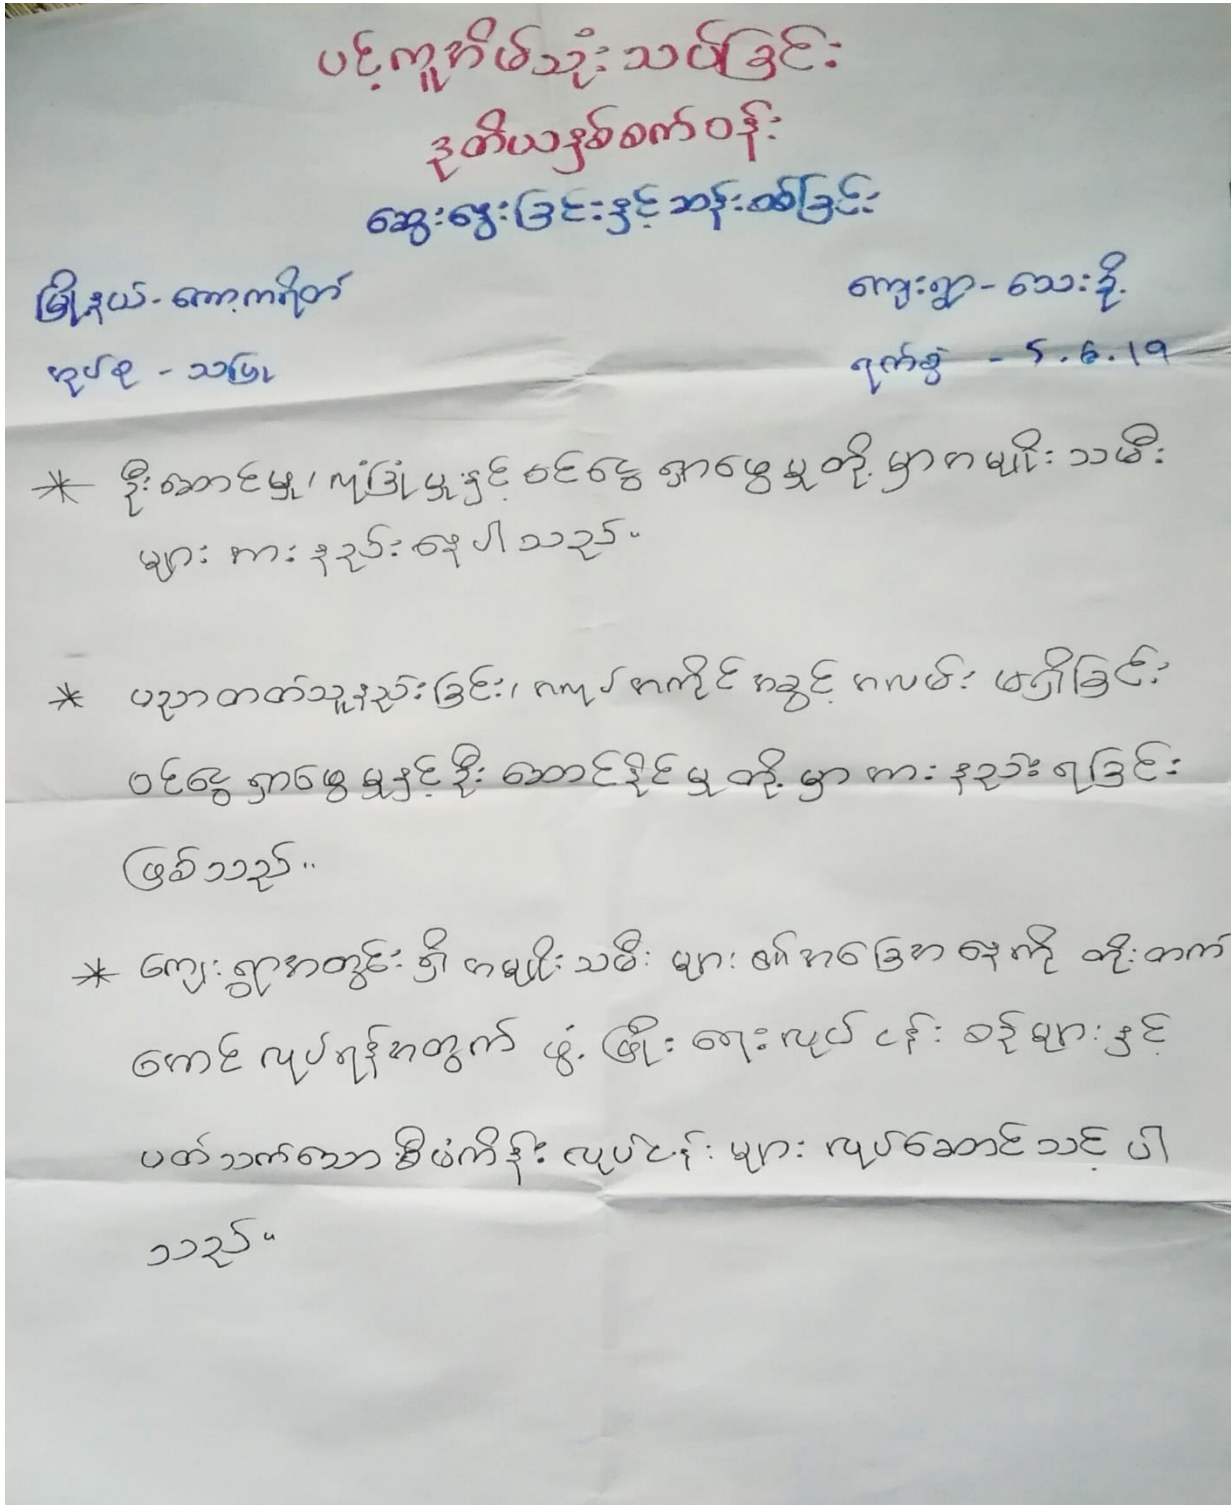 ပင့်ကူအိမ်သုံးသပ်ခြင်း
ဒုတိယနှစ်စက်ဝန်း
ဆွေးနွေးခြင်းနှင့်ဆန်းစစ်ခြင်း
မြို့နယ်-ကော့ကရိတ်
ကျေးရွာ-သေးခို့
အုပ်စု - သမြူ
ရက်စွဲ - 5.6.19
* ဦးဆောင်မှု၊ လုံခြုံမှုနှင့် ဝင်ငွေ ရှာဖွေမှု တို့မှာ အမျိုးသမီး
များ အား နည်းနေပါသည်။
* ပညာတတ်သူနည်းခြင်း၊ အလုပ်အကိုင် အခွင့် အလမ်း မရှိခြင်း
ဝင်ငွေ ရှာဖွေမှုနှင့် ဦးဆောင်နိုင်မှု တို့မှာ အား နည်းရခြင်း
ဖြစ်သည်။
* ကျေးရွာအတွင်းရှိ အမျိုးသမီး များ ၏ အခြေအနေကို တိုးတက်
ကောင်း လုပ်ရန်အတွက် ဖွံ့ဖြိုးရေးလုပ်ငန်း စဉ်များနှင့်
ပတ်သက်သော စီမံကိန်း လုပ်ငန်း များ လုပ်ဆောင်သင့် ပါ
သည်။